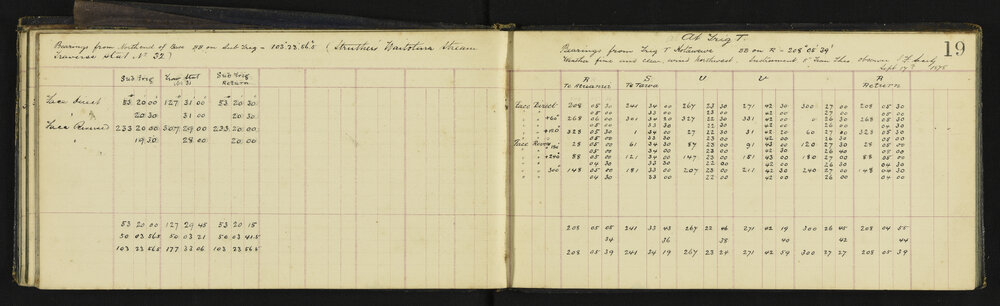 Bearings from North end of Base BB on Sub Trig = 103° 23' 56.5 (Struthers Waitotara Stream
Traverse stat. No 32)
Sub Trig Trav Stat Sub Trig
Return
Face Direct 53 20 00 127 31 00 53 20 30
20 30 31 00 20 30
Face Reverse 233 20 00 307 29 00 233 20 00
" 19 30 28 00 20 00
53 20 00 127 29 45 53 20 15
50 03 56.5 50 03 21 50 03 41.5
103 23 56.5 177 33 06 103 23 56.5
At Trig T.
19
Bearings from Trig T BB on R = 208° 05' 39"
Weather fine and clear wind Northwest. Instrument 5" Theo observer
Sept 17th
R S U V R
To Taiwa Return
Face Direct 208 05 30 241 34 00 267 23 30 271 42 30 300 27 00 208 05 30
05 00 33 00 22 00 42 00 27 00 05 00
" " +60° 268 06 00 301 34 30 327 22 30 331 42 00 0 26 30 268 05 30
" " +120 328 05 30 1 34 00 27 22 30 31 42 30 60 27 00 328 05 30
Face Reverse 28 05 00 61 34 30 87 23 00 91 43 00 120 27 30 28 05 00
" " +240 88 05 00 121 34 00 147 23 00 151 43 00 180 27 00 88 05 00
" " 300° 148 05 00 181 33 00 207 23 00 211 42 30 240 27 00 148 04 30
04 30 33 00 22 00 42 00 26 00 04 00
208 05 05 241 33 43 267 22 46 271 42 19 300 26 45 208 04 55
34 36 38 40 42 44
208 05 39 241 34 19 267 23 24 271 42 59 300 27 27 208 05 39